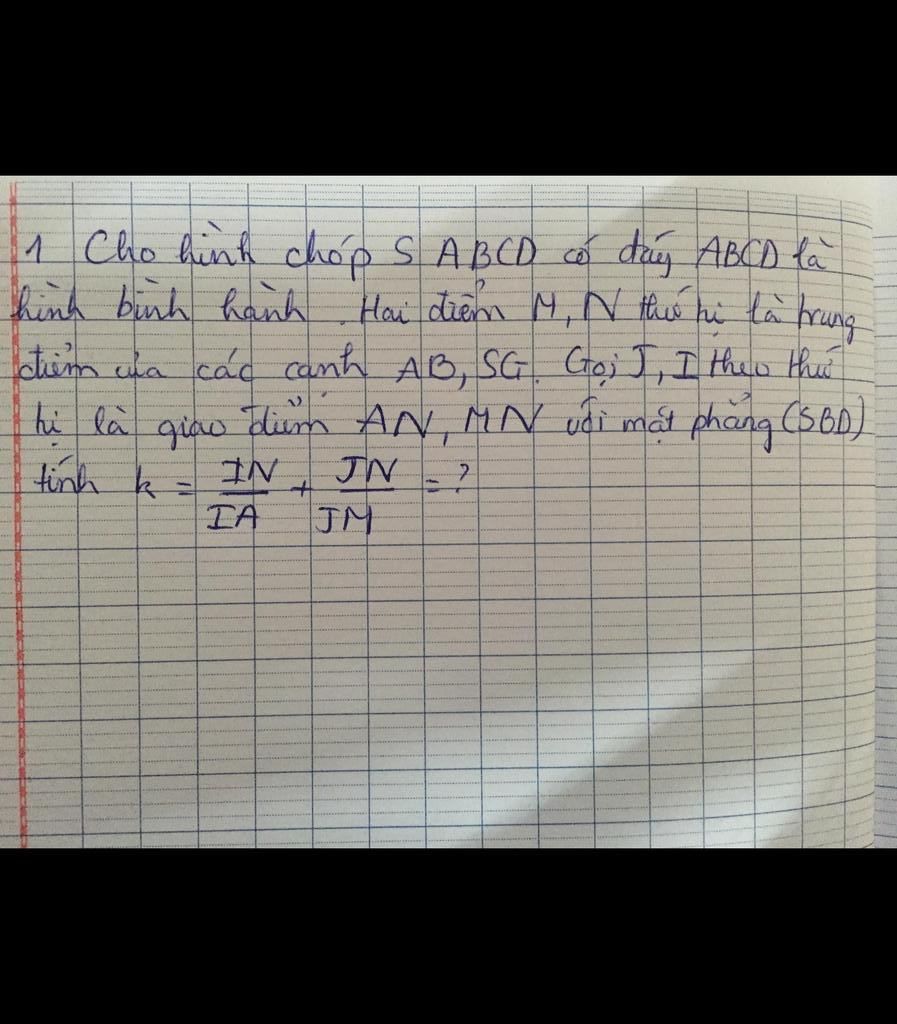 1 Cho hình chóp S ABCD có đáy ABCD là
hình bình hành. Hai điểm M, N thứ tự là trung
điểm của các cạnh AB, SG. Gọi J, I theo thứ
tự là giao điểm AN, MN với mặt phẳng (SBD)
tính k = IN/IA + JN/JM = ?